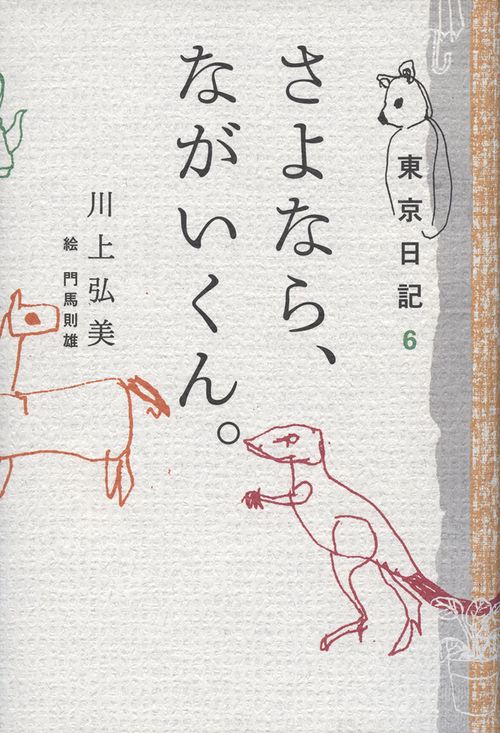 東京日記 6
さよなら、
ながいくん。
川上弘美
絵 門馬則雄